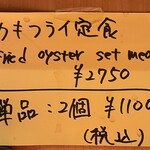 カキフライ定食
fried oyster set meal
¥2750
単品:2個 ¥1100
(税込)